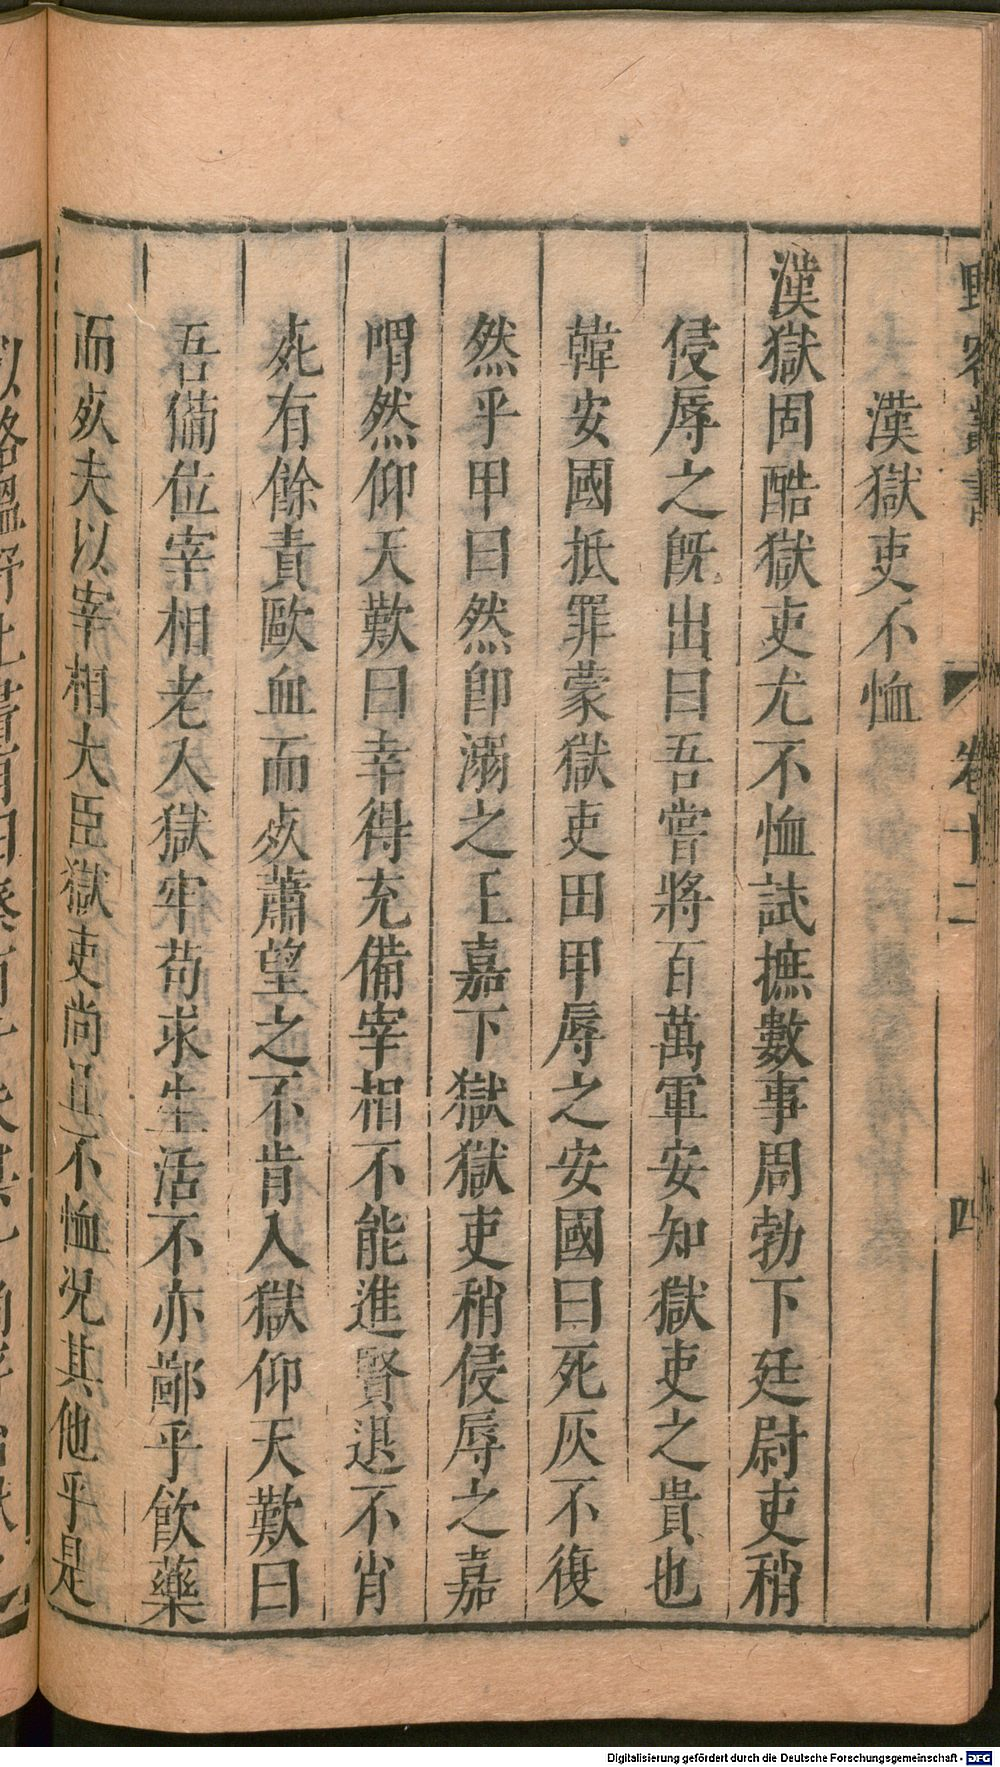 野客叢書 卷十二 四
漢獄吏不恤
漢獄固酷獄吏尤不恤試摭數事周勃下廷尉吏稍
侵辱之旣出曰吾嘗將百萬軍安知獄吏之貴也
韓安國抵罪蒙獄吏田甲辱之安國曰死灰不復
然乎甲曰然卽溺之王嘉下獄獄吏稍侵辱之嘉
喟然仰天歎曰幸得充備宰相不能進賢退不肖
死有餘責歐血而死蕭望之不肯入獄仰天歎曰
吾備位宰相老入獄牢苟求生活不亦鄙乎飮藥
而死夫以宰相大臣獄吏尚且不恤况其他乎是
Digitalisierung gefördert durch die Deutsche Forschungsgemeinschaft - DFG